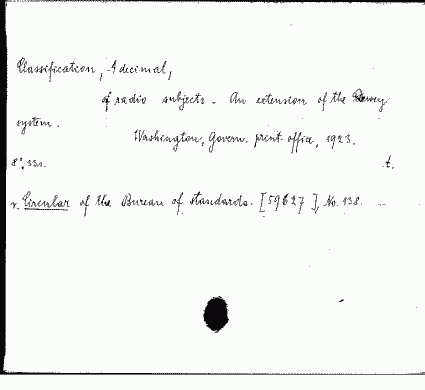 Classification, A decimal,
of radio subjects - An extension of the Dewey
system.
Washington, Govern. print. office, 1923.
8°, 33s. t.
v. Circular of the Bureau of standards. [59627], No. 138. —